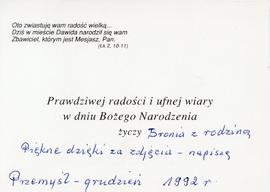 Oto zwiastuję wam radość wielką...
Dziś w mieście Dawida narodził się wam
Zbawiciel, którym jest Mesjasz, Pan.
(Łk 2, 10-11)
Prawdziwej radości i ufnej wiary
w dniu Bożego Narodzenia
życzy Bronia z rodziną
Piękne dzięki za zdjęcia - napiszę
Przemyśl - grudzień 1992 r.